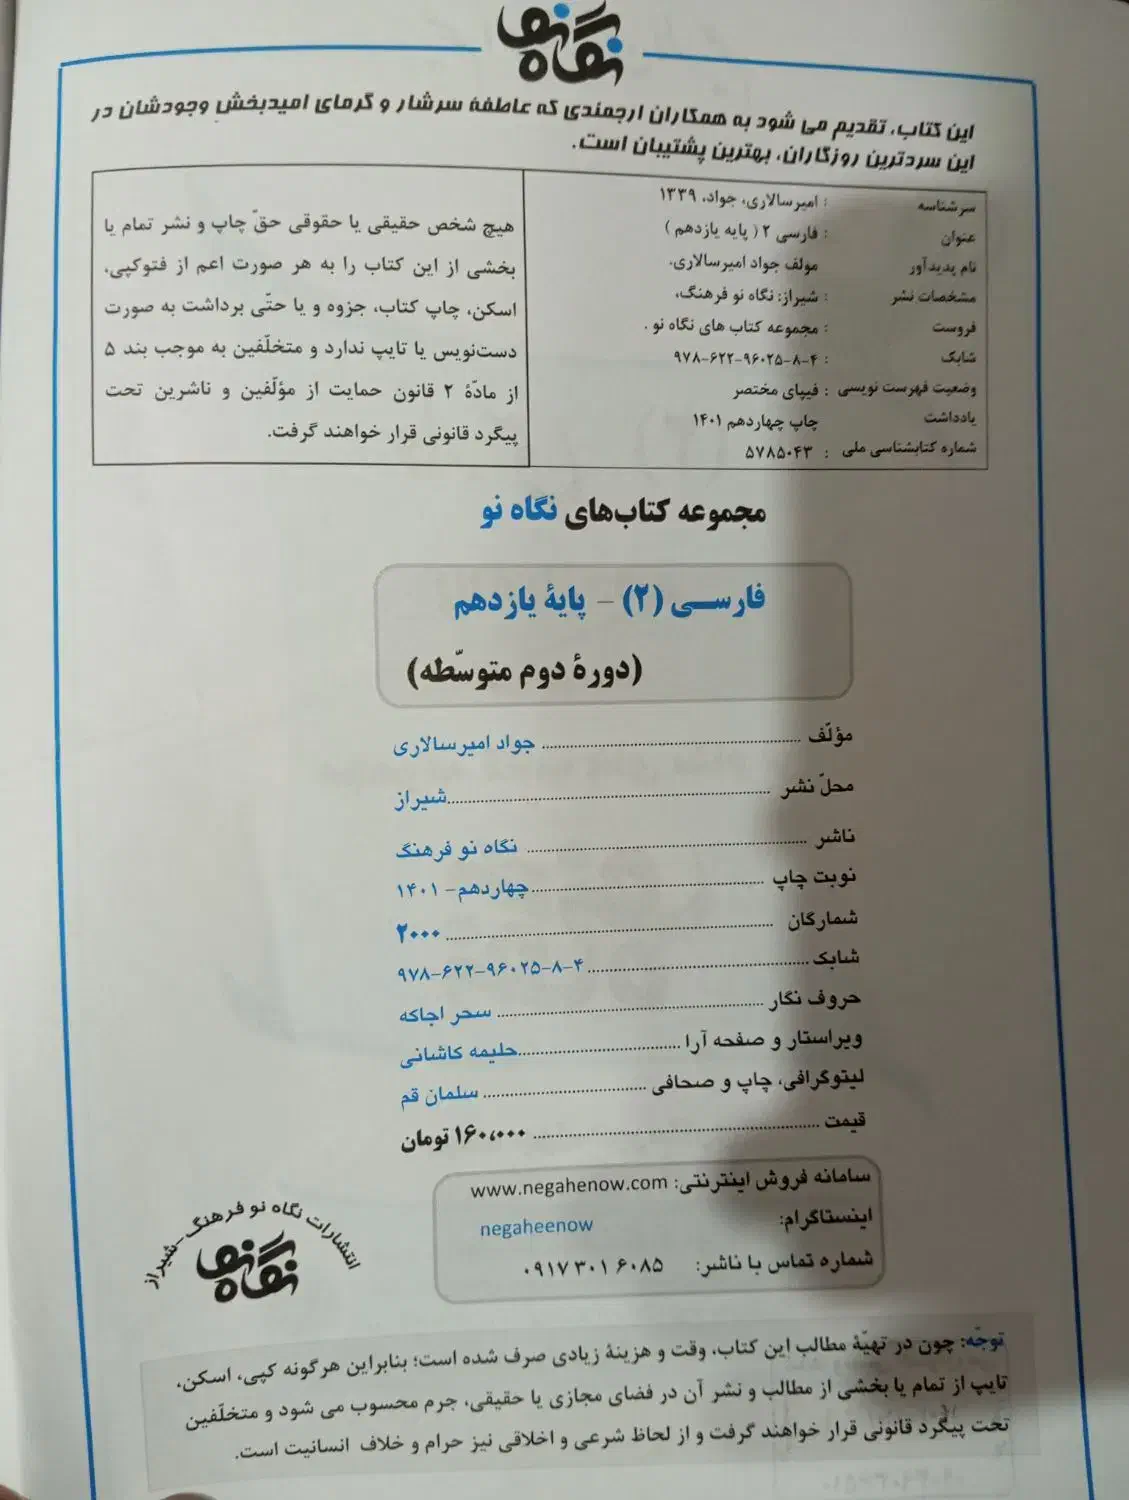 نگاه نو
این کتاب، تقدیم می شود به همکاران ارجمندی که عاطفۀ سرشار و گرمای امیدبخشِ وجودشان در
این سردترین روزگاران، بهترین پشتیبان است.
سرشناسه : امیرسالاری، جواد، ۱۳۳۹
عنوان : فارسی ۲ ( پایه یازدهم )
نام پدیدآور مولف جواد امیرسالاری.
مشخصات نشر : شیراز: نگاه نو فرهنگ،
فروست : مجموعه کتاب های نگاه نو .
شابک : ۹۷۸-۶۲۲-۹۶۰۲۵-۸-۴
وضعیت فهرست نویسی : فیپای مختصر
یادداشت چاپ چهاردهم ۱۴۰۱
شماره کتابشناسی ملی : ۵۷۸۵۰۴۳
هیچ شخص حقیقی یا حقوقی حقّ چاپ و نشر تمام یا
بخشی از این کتاب را به هر صورت اعم از فتوکپی،
اسکن، چاپ کتاب، جزوه و یا حتّی برداشت به صورت
دست‌نویس یا تایپ ندارد و متخلّفین به موجب بند ۵
از مادّۀ ۲ قانون حمایت از مؤلّفین و ناشرین تحت
پیگرد قانونی قرار خواهند گرفت.
مجموعه کتاب‌های نگاه نو
فارسی (۲) - پایۀ یازدهم
(دورۀ دوم متوسّطه)
مؤلّف .......... جواد امیرسالاری
محلّ نشر .......... شیراز
ناشر .......... نگاه نو فرهنگ
نوبت چاپ .......... چهاردهم- ۱۴۰۱
شمارگان .......... ۲۰۰۰
شابک .......... ۹۷۸-۶۲۲-۹۶۰۲۵-۸-۴
حروف نگار .......... سحر اجاکه
ویراستار و صفحه آرا .......... حلیمه کاشانی
لیتوگرافی، چاپ و صحافی .......... سلمان قم
قیمت .......... ۱۶۰،۰۰۰ تومان
سامانه فروش اینترنتی: www.negahenow.com
اینستاگرام: negaheenow
شماره تماس با ناشر: ۰۹۱۷ ۳۰۱ ۶۰۸۵
انتشارات نگاه نو فرهنگ-شیراز
نگاه نو
توجّه: چون در تهیّۀ مطالب این کتاب، وقت و هزینۀ زیادی صرف شده است؛ بنابراین هرگونه کپی، اسکن،
تایپ از تمام یا بخشی از مطالب و نشر آن در فضای مجازی یا حقیقی، جرم محسوب می شود و متخلّفین
تحت پیگرد قانونی قرار خواهند گرفت و از لحاظ شرعی و اخلاقی نیز حرام و خلاف انسانیت است.